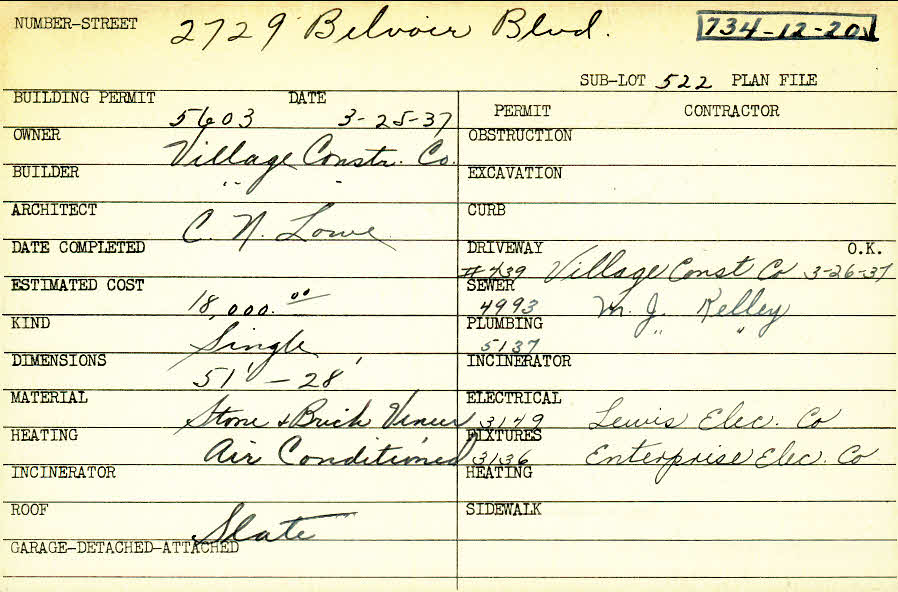 NUMBER-STREET 2729 Belvoir Blvd. 734-12-20
SUB-LOT 522 PLAN FILE
BUILDING PERMIT DATE PERMIT CONTRACTOR
5603 3-25-37
OWNER Village Constr. Co. OBSTRUCTION
BUILDER " " EXCAVATION
ARCHITECT C. N. Lowe CURB
DATE COMPLETED DRIVEWAY O.K.
#439 Village Const Co 3-26-37
ESTIMATED COST 18,000.00 SEWER
4993 M. J. Kelley
KIND Single PLUMBING
5137 " "
DIMENSIONS 51' - 28' INCINERATOR
MATERIAL Stone & Brick Veneer ELECTRICAL
3149 Lewis Elec. Co
HEATING Air Conditioned FIXTURES
3136 Enterprise Elec. Co
INCINERATOR HEATING
ROOF Slate SIDEWALK
GARAGE-DETACHED-ATTACHED